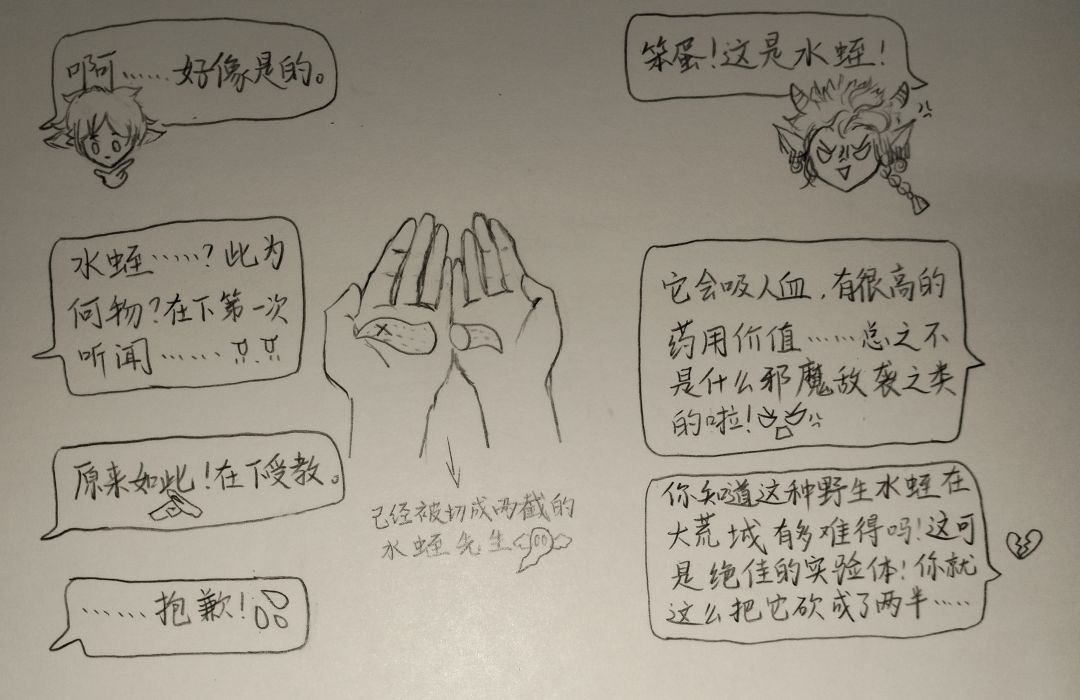 笨蛋！这是水蛭！
啊……好像是的。
水蛭……？此为
何物？在下第一次
听闻……
它会吸人血，有很高的
药用价值……总之不
是什么邪魔敌袭之类
的啦！
原来如此！在下受教。
你知道这种野生水蛭在
大荒城有多难得吗！这可
是绝佳的实验体！你就
这么把它砍成了两半……
……抱歉！
已经被切成两截的
水蛭先生